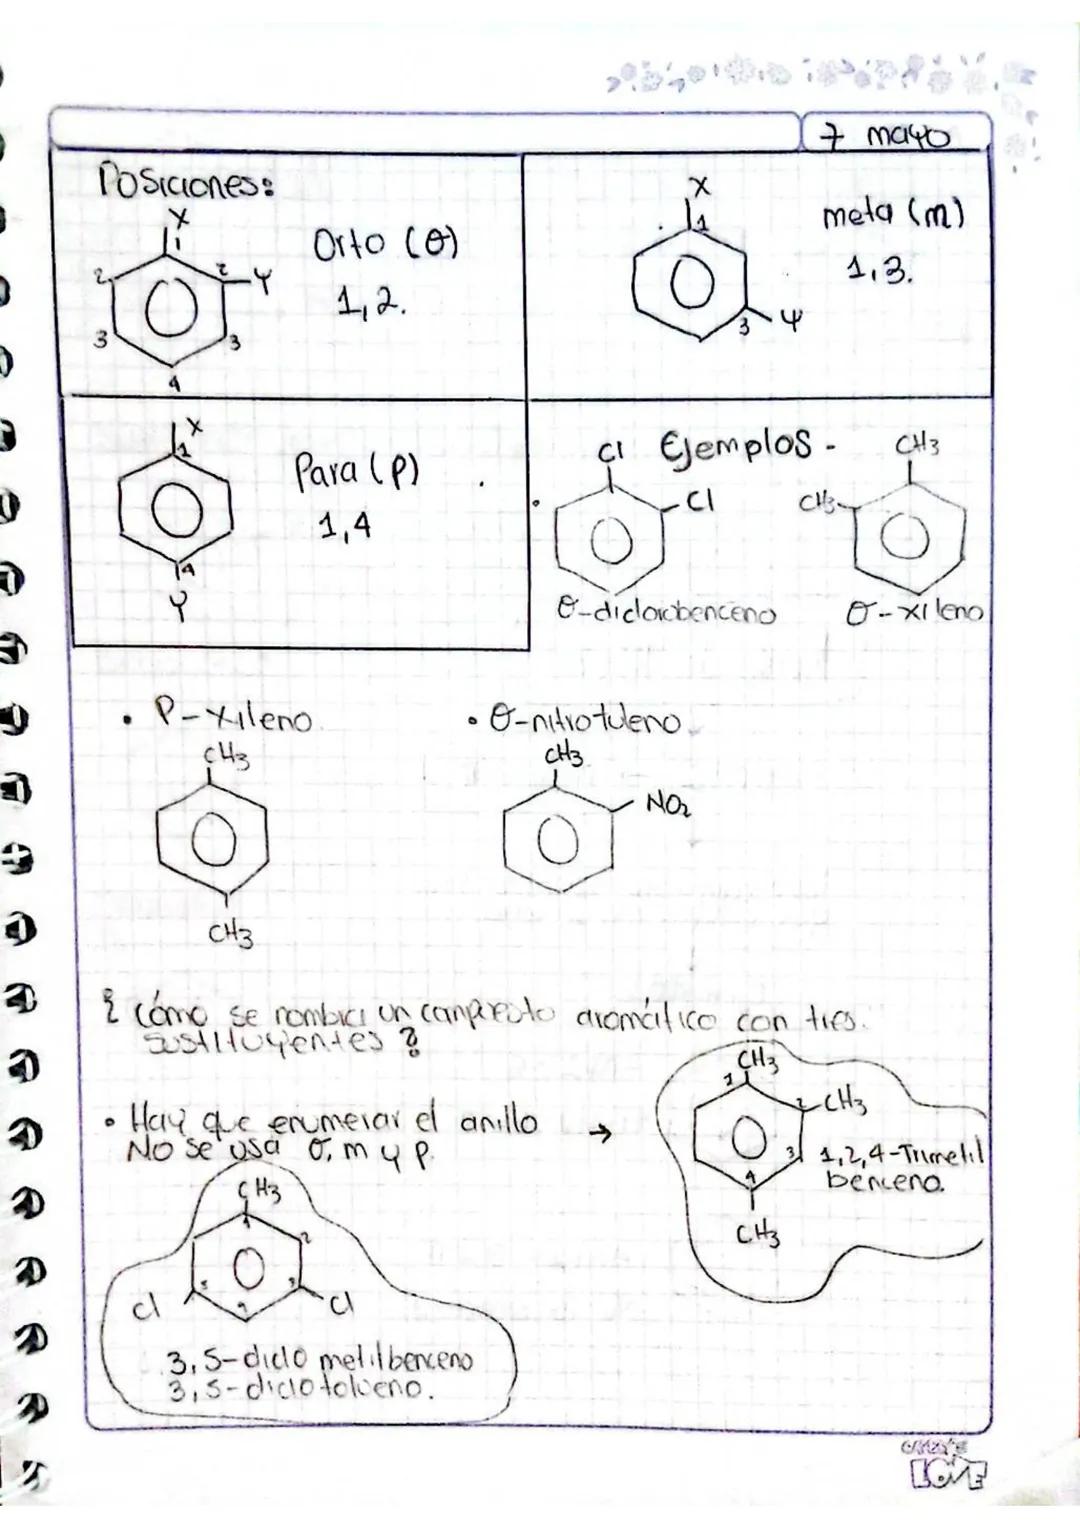 7 mayo
Posiciones:
X
1
2
2
Y
3
3
4
Orto (θ)
1,2.
X
1
3
Y
meta (m)
1,3.
X
1
4
Y
Para (P)
1,4
Ejemplos -
Cl
Cl
θ-diclorobenceno
CH3
CH3
σ-xileno
• P-Xileno.
CH3
CH3
• θ-nitrotuleno.
CH3
NO2
¿ Cómo se nombra un compuesto aromático con tres
sustituyentes ?
• Hay que enumerar el anillo →
No se usa o, m y p.
CH3
1
2
CH3
3
4
CH3
1,2,4-Trimetil
benceno.
CH3
1
2
3
5
Cl
Cl
3,5-diclo metilbenceno
3,5-diclotolueno.
LOVE